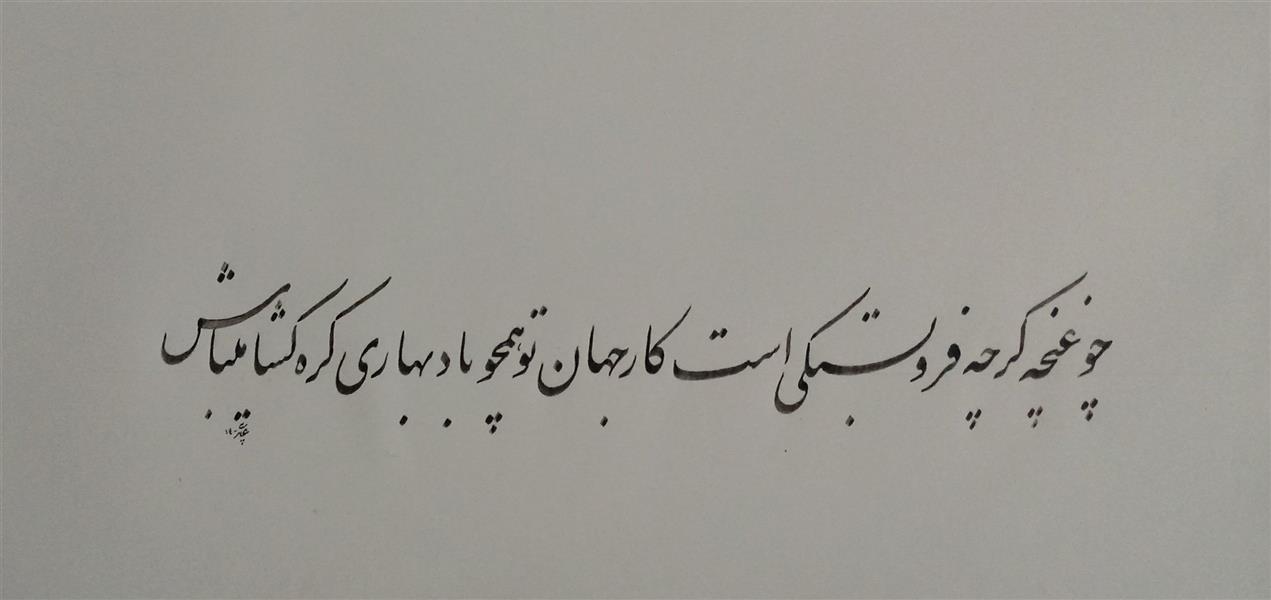 چو غنچه گرچه فروبستگی است کار جهان تو همچو باد بهاری گره گشا میباش